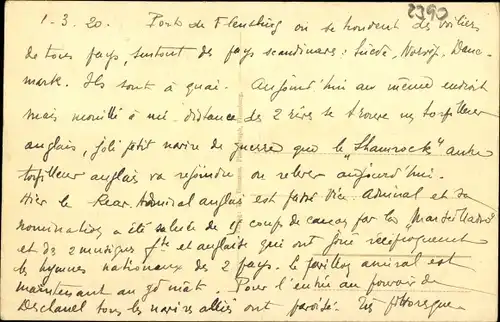 2390
1-3-20. Port de Flensburg où se trouvent des voiliers
de tous pays, surtout des pays scandinaves: Suède, Norvège, Dane-
mark. Ils sont à quai. Aujourd'hui au même endroit
mais mouillé à mi-distance des 2 rives se trouve un torpilleur
anglais, joli petit navire de guerre que le "Shamrock" autre
torpilleur anglais va rejoindre ou relever aujourd'hui.
Hier le Rear-Admiral anglais est passé Vice-Admiral et sa
nomination a été saluée de coups de canon par la "Marseillaise"
et des 2 musiques fse et anglaise qui ont joué réciproquement
les hymnes nationaux des 2 pays. Le pavillon amiral est
maintenant au gd mât. Pour l'entrée au pouvoir de
Deschanel tous les navires alliés ont pavoisé. Très pittoresque